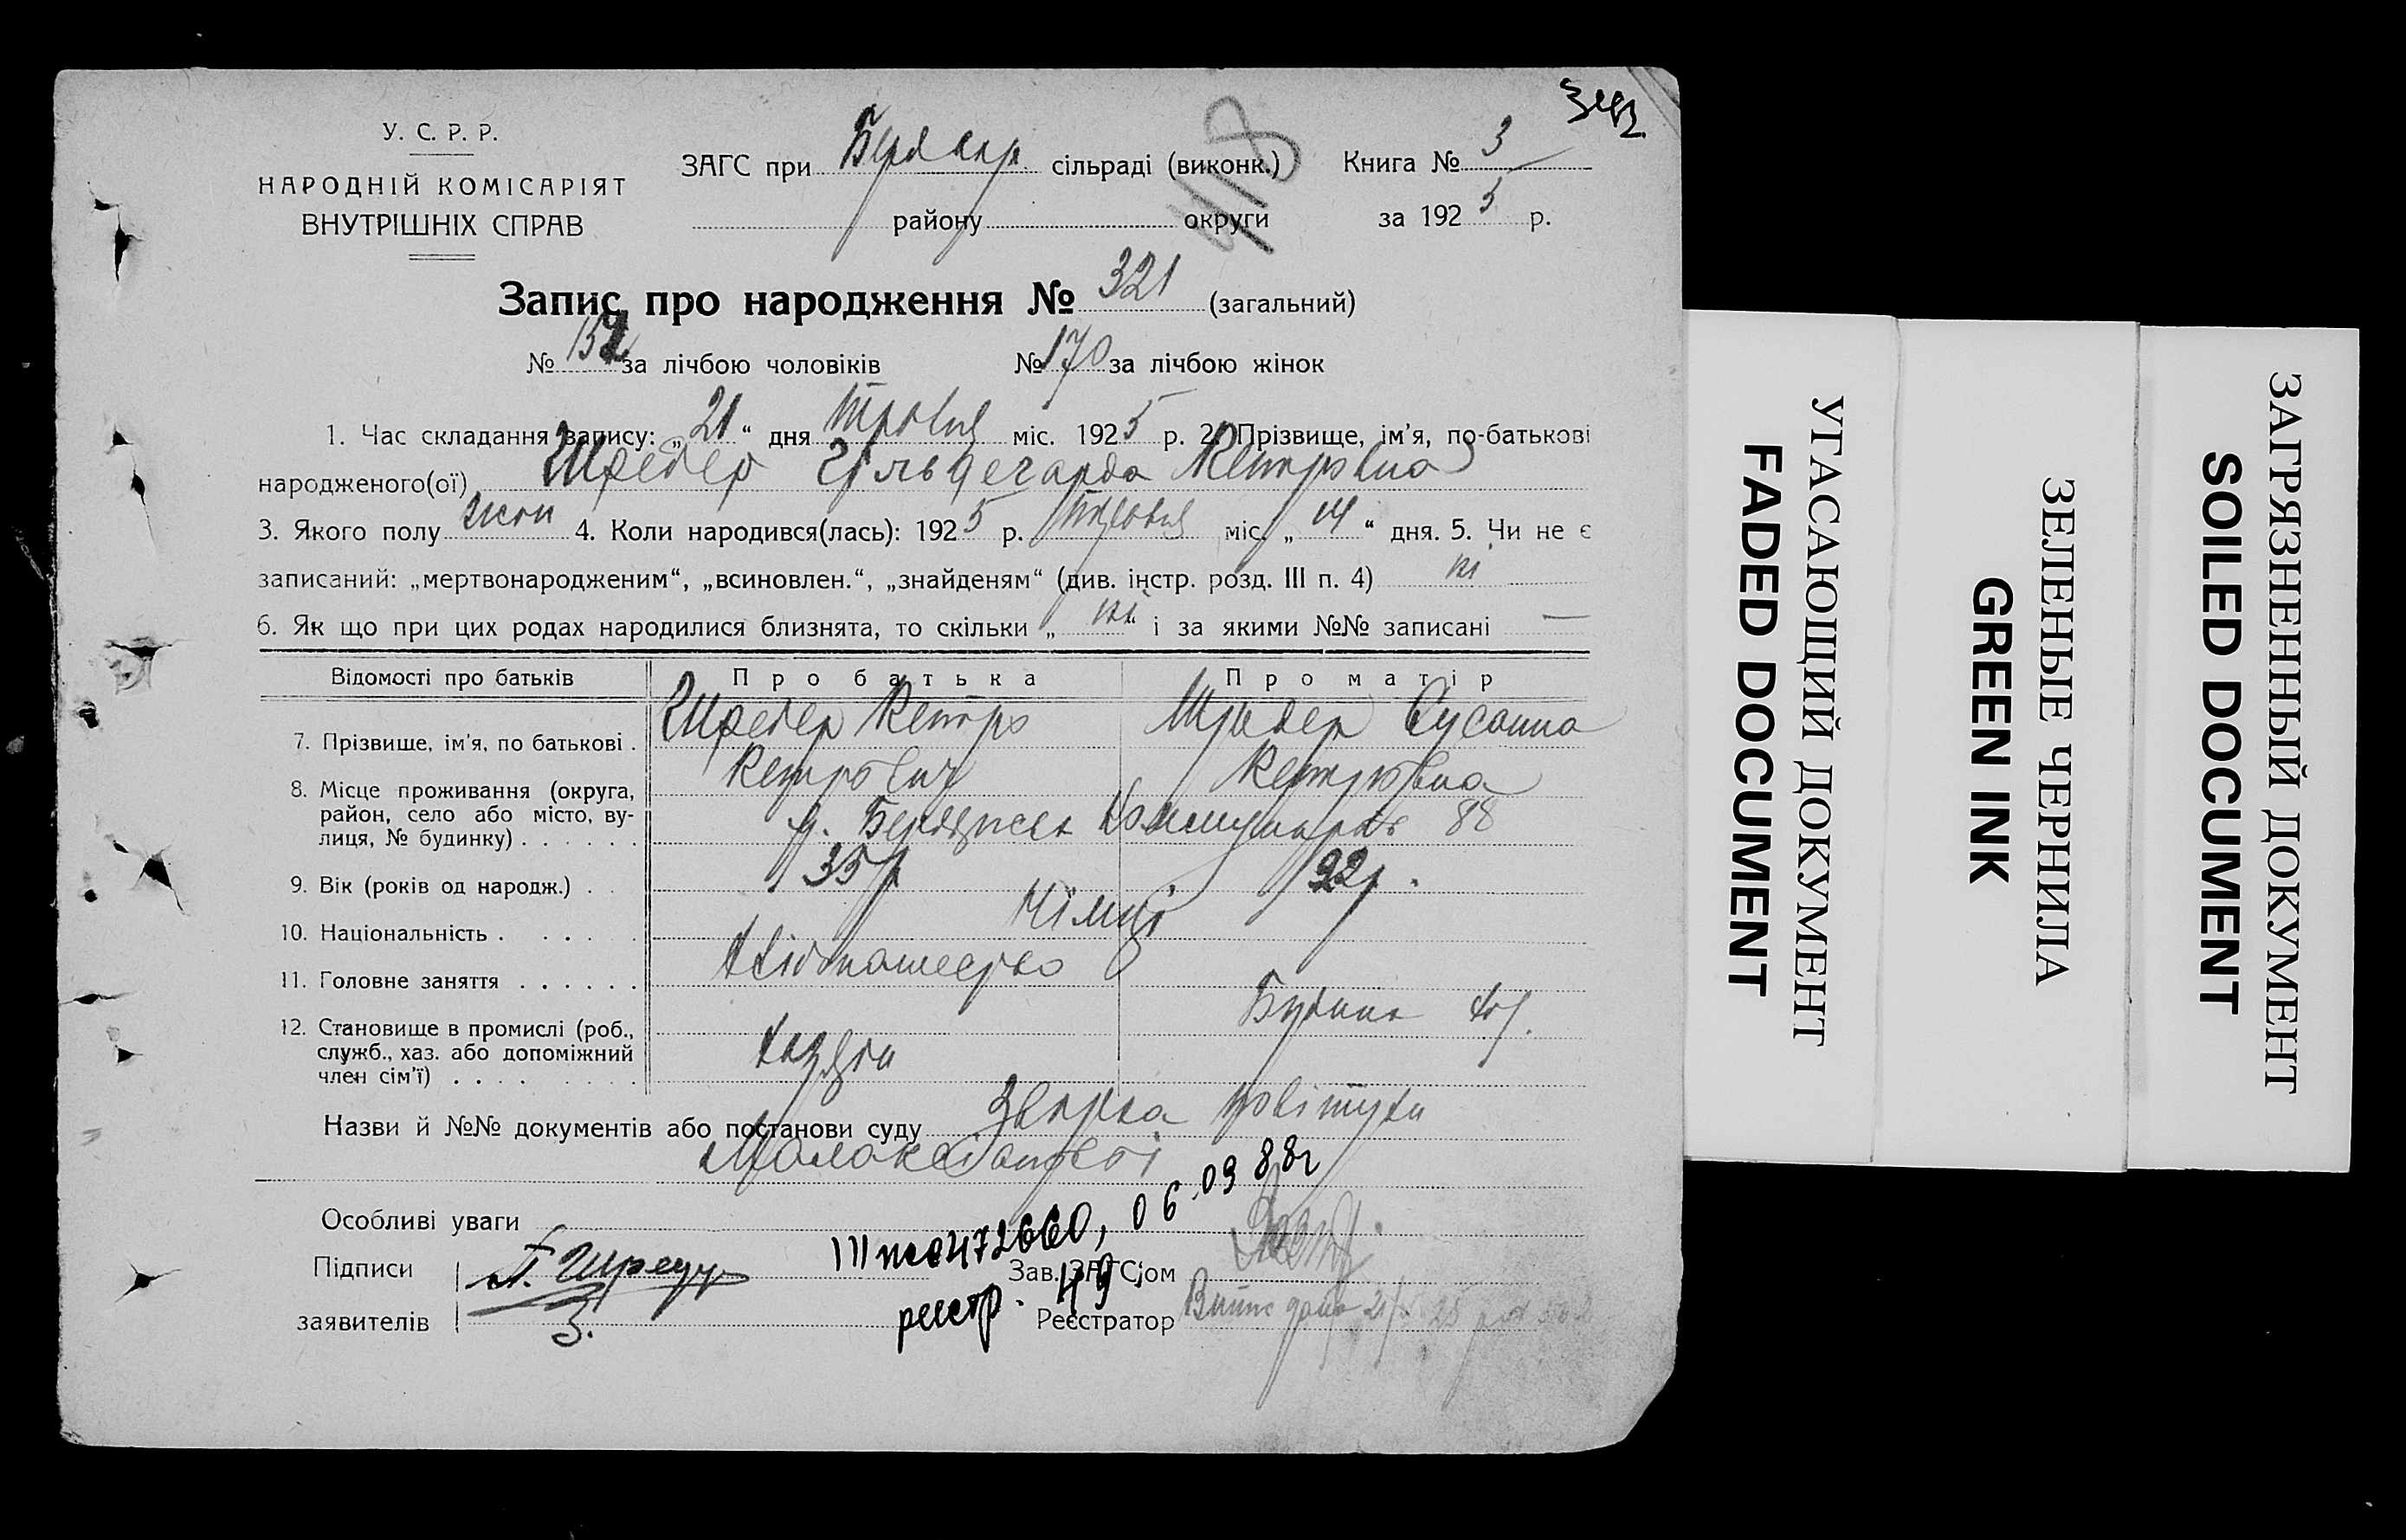 342
У. С. Р. Р.
НАРОДНІЙ КОМІСАРІЯТ
ВНУТРІШНІХ СПРАВ
ЗАГС при сільраді (виконк.) Книга № 3
району округи за 1925 р.
418
Запис про народження № 321 (загальний)
№ 152 за лічбою чоловіків № 170 за лічбою жінок
1. Час складання запису: „21“ дня травня міс. 1925 р. 2. Прізвище, ім'я, по-батькові
народженого(ої) Шредер Гільдегарда Петровна
3. Якого полу жін 4. Коли народився(лась): 1925 р. травня міс. „14“ дня. 5. Чи не є
записаний: „мертвонародженим“, „всиновлен.“, „знайденям“ (див. інстр. розд. III п. 4) ні
6. Як що при цих родах народилися близнята, то скільки „ні“ і за якими №№ записані —
Відомості про батьків Про батька Про матір
7. Прізвище, ім'я, по батькові . Шредер Петро Шредер Сусанна
Петрович Петровна
8. Місце проживання (округа, район, село або місто, ву-
лиця, № будинку) . . . . . . 88
9. Вік (років од народж.) . . 35 р 22 р.
10. Національність . . . . . Німці
11. Головне заняття . . . . . .
12. Становище в промислі (роб.,
служб., хаз. або допоміжний
член сім'ї) . . . . . . . . хазяін
Назви й №№ документів або постанови суду повітухи
Особливі уваги
III 472660, 06.09 88г
Підписи П. Шредер Зав. ЗАГС'ом
реєстр. 49
заявителів Реєстратор
УГАСАЮЩИЙ ДОКУМЕНТ
FADED DOCUMENT
ЗЕЛЕНЫЕ ЧЕРНИЛА
GREEN INK
ЗАГРЯЗНЕННЫЙ ДОКУМЕНТ
SOILED DOCUMENT